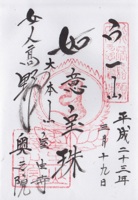 平成二十三年
三月十九日
宀一山
如意宝珠
大本山
室生寺
女人高野
奥之院